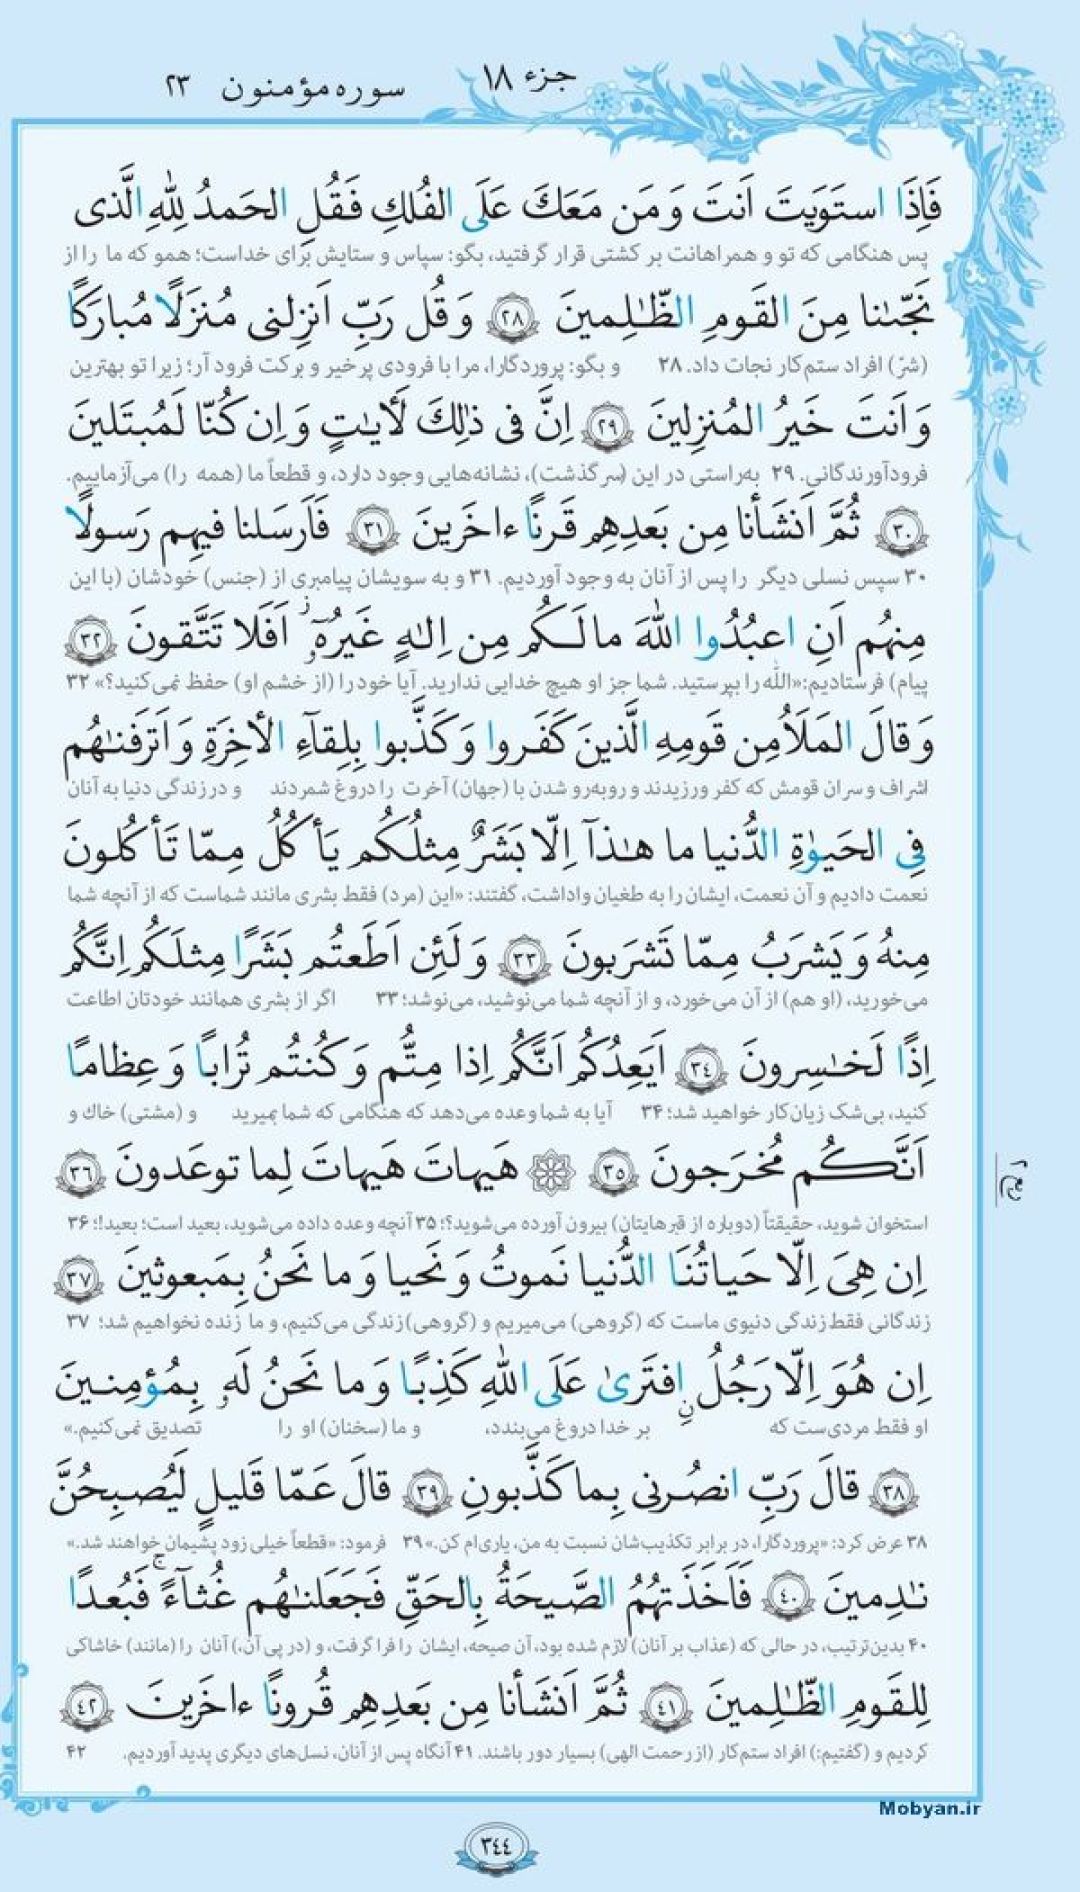 جزء ۱۸
سوره مؤمنون ۲۳
فَاِذَا استَوَيتَ اَنتَ وَ مَن مَعَكَ عَلَى الفُلكِ فَقُلِ الحَمدُ لِلّٰهِ الَّذى
پس هنگامی که تو و همراهانت بر کشتی قرار گرفتید، بگو: سپاس و ستایش برای خداست؛ همو که ما را از
نَجّىٰنا مِنَ القَومِ الظّٰلِمينَ ﴿٢٨﴾ وَ قُل رَبِّ اَنزِلنى مُنزَلًا مُبارَكًا
(شرّ) افراد ستم‌کار نجات داد. ۲۸ و بگو: پروردگارا، مرا با فرودی پرخیر و برکت فرود آر؛ زیرا تو بهترین
وَ اَنتَ خَيرُ المُنزِلينَ ﴿٢٩﴾ اِنَّ فى ذٰلِكَ لَأٓيٰتٍ وَ اِن كُنّا لَمُبتَلينَ
فرودآورندگانی. ۲۹ به‌راستی در این (سرگذشت)، نشانه‌هایی وجود دارد، و قطعاً ما (همه را) می‌آزماییم.
﴿٣٠﴾ ثُمَّ اَنشَأنا مِن بَعدِهِم قَرنًا ءاخَرينَ ﴿٣١﴾ فَاَرسَلنا فيهِم رَسولًا
۳۰ سپس نسلی دیگر را پس از آنان به وجود آوردیم. ۳۱ و به سویشان پیامبری از (جنس) خودشان (با این
مِنهُم اَنِ اعبُدُوا اللّٰهَ ما لَكُم مِن اِلـٰهٍ غَيرُهٓ ۥ ۖ اَفَلا تَتَّقونَ ﴿٣٢﴾
پیام) فرستادیم:«الله را بپرستید. شما جز او هیچ خدایی ندارید. آیا خود را (از خشم او) حفظ نمی‌کنید؟» ۳۲
وَ قالَ المَلَأُ مِن قَومِهِ الَّذينَ كَفَروا وَ كَذَّبوا بِلِقآءِ الأٓخِرَةِ وَ اَترَفنٰهُم
اشراف و سران قومش که کفر ورزیدند و روبه‌رو شدن با (جهان) آخرت را دروغ شمردند و در زندگی دنیا به آنان
فِى الحَيوٰةِ الدُّنيا ما هـٰذآ اِلّا بَشَرٌ مِثلُكُم يَأكُلُ مِمّا تَأكُلونَ
نعمت دادیم و آن نعمت، ایشان را به طغیان واداشت، گفتند: «این (مرد) فقط بشری مانند شماست که از آنچه شما
مِنهُ وَ يَشرَبُ مِمّا تَشرَبونَ ﴿٣٣﴾ وَ لَئِن اَطَعتُم بَشَرًا مِثلَكُم اِنَّكُم
می‌خورید، (او هم) از آن می‌خورد، و از آنچه شما می‌نوشید، می‌نوشد؛ ۳۳ اگر از بشری همانند خودتان اطاعت
اِذًا لَخـٰسِرونَ ﴿٣٤﴾ اَيَعِدُكُم اَنَّكُم اِذا مِتُّم وَ كُنتُم تُرابًا وَ عِظامًا
کنید، بی‌شک زیان‌کار خواهید شد؛ ۳۴ آیا به شما وعده می‌دهد که هنگامی که شما بمیرید و (مشتی) خاك و
اَنَّكُم مُخرَجونَ ﴿٣٥﴾ ۞ هَيهاتَ هَيهاتَ لِما توعَدونَ ﴿٣٦﴾
استخوان شوید، حقیقتاً (دوباره از قبرهایتان) بیرون آورده می‌شوید؟؛ ۳۵ آنچه وعده داده می‌شوید، بعید است؛ بعید!؛ ۳۶
اِن هِىَ اِلّا حَياتُنَا الدُّنيا نَموتُ وَ نَحيا وَ ما نَحنُ بِمَبعوثينَ ﴿٣٧﴾
زندگانی فقط زندگی دنیوی ماست که (گروهی) می‌میریم و (گروهی) زندگی می‌کنیم، و ما زنده نخواهیم شد؛ ۳۷
اِن هُوَ اِلّا رَجُلُ نِ افتَرىٰ عَلَى اللّٰهِ كَذِبًا وَ ما نَحنُ لَهٗ بِمُؤمِنينَ
او فقط مردی‌ست که بر خدا دروغ می‌بندد، و ما (سخنان) او را تصدیق نمی‌کنیم.»
﴿٣٨﴾ قالَ رَبِّ انصُرنى بِما كَذَّبونِ ﴿٣٩﴾ قالَ عَمّا قَليلٍ لَيُصبِحُنَّ
۳۸ عرض کرد: «پروردگارا، در برابر تکذیب‌شان نسبت به من، یاری‌ام کن.» ۳۹ فرمود: «قطعاً خیلی زود پشیمان خواهند شد.»
نـٰدِمينَ ﴿٤٠﴾ فَاَخَذَتهُمُ الصَّيحَةُ بِالحَقِّ فَجَعَلنٰهُم غُثآءً ۚ فَبُعدًا
۴۰ بدین‌ترتیب، در حالی که (عذاب بر آنان) لازم شده بود، آن صیحه، ایشان را فرا گرفت، و (در پی آن،) آنان را (مانند) خاشاکی
لِلقَومِ الظّٰلِمينَ ﴿٤١﴾ ثُمَّ اَنشَأنا مِن بَعدِهِم قُرونًا ءاخَرينَ ﴿٤٢﴾
کردیم و (گفتیم:) افراد ستم‌کار (از رحمت الهی) بسیار دور باشند. ۴۱ آنگاه پس از آنان، نسل‌های دیگری پدید آوردیم. ۴۲
Mobyan.ir
٣٤٤